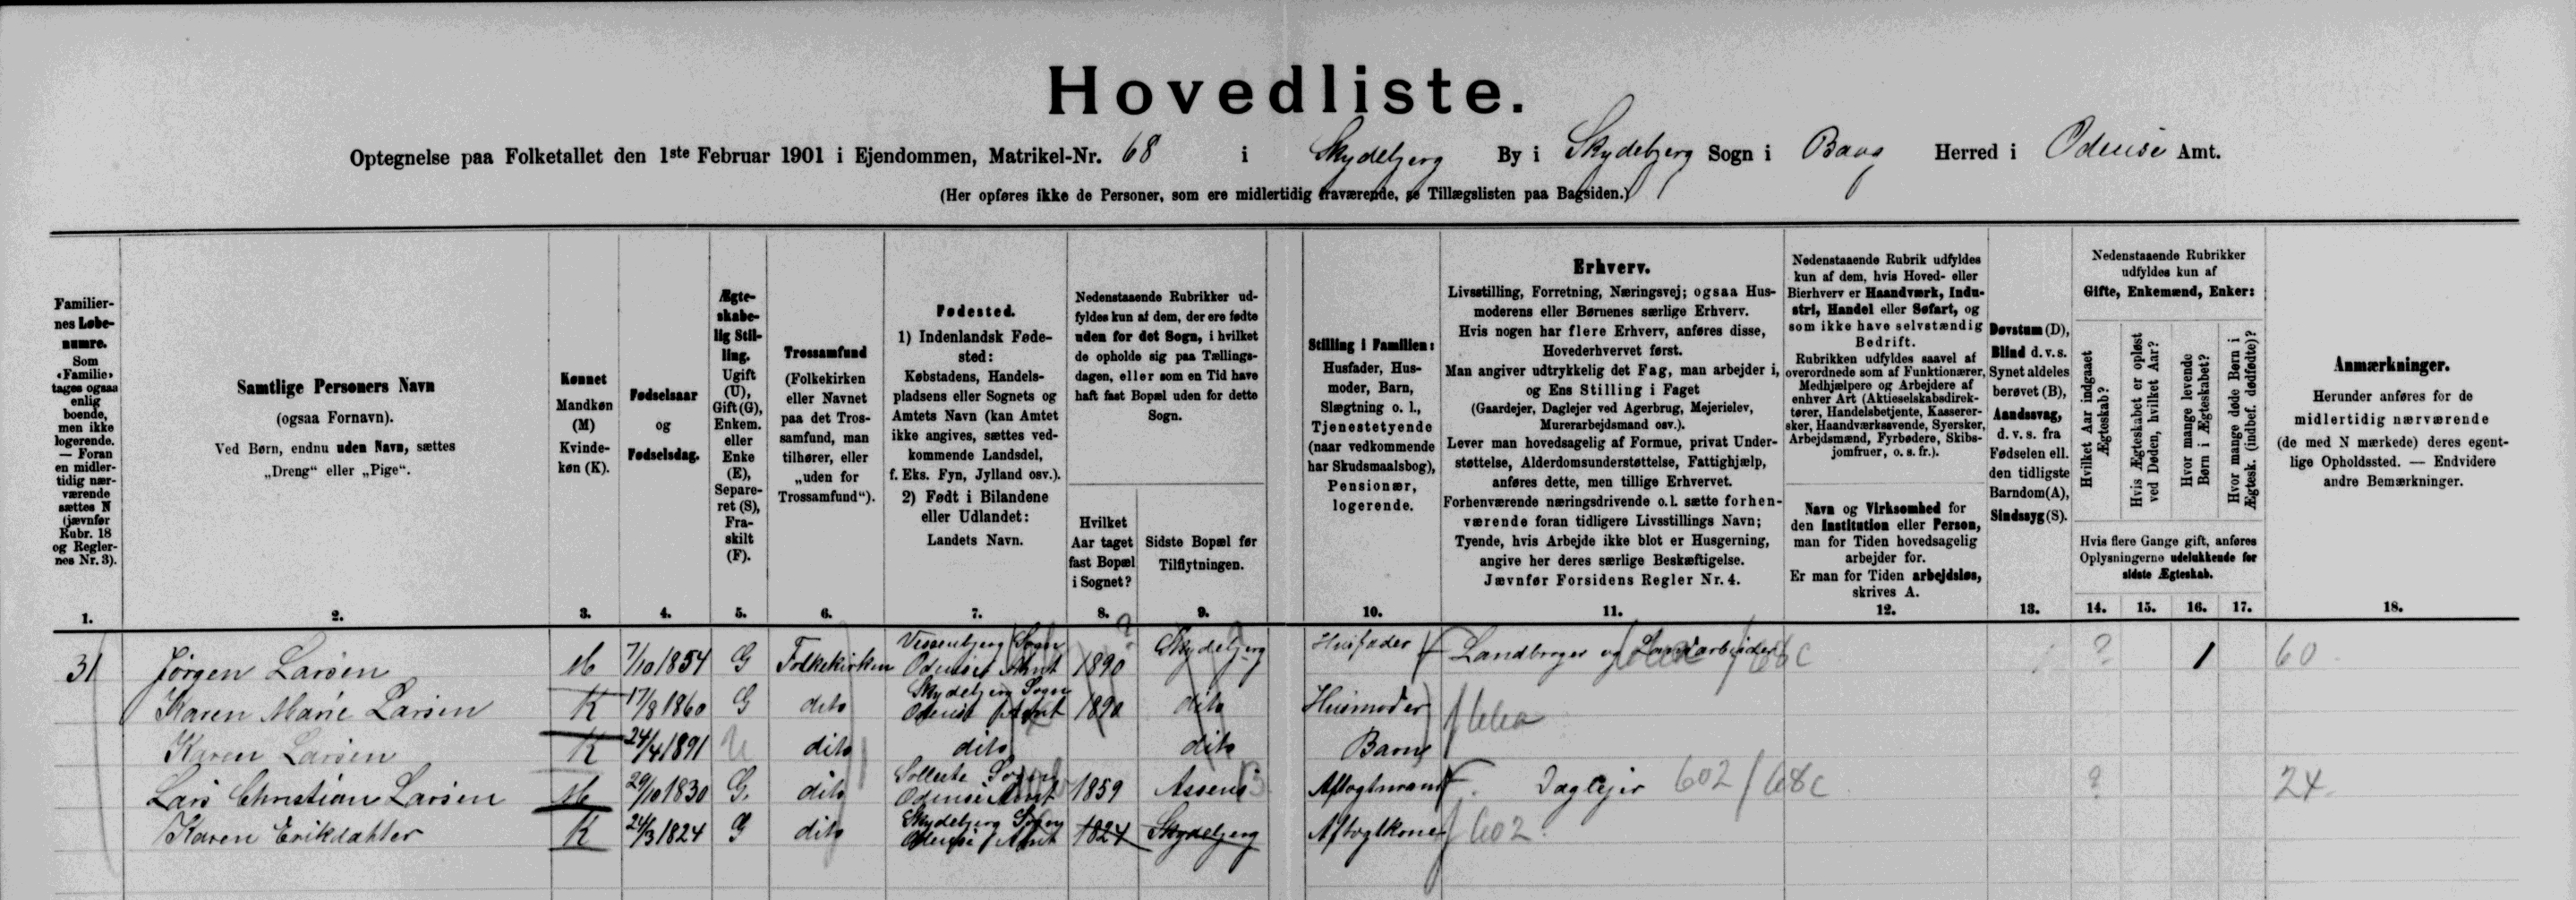 Hovedliste.
Optegnelse paa Folketallet den 1ste Februar 1901 i Ejendommen, Matrikel-Nr. 68 i Skydebjerg By i Skydebjerg Sogn i Baag Herred i Odense Amt.
(Her opføres ikke de Personer, som ere midlertidig fraværende, se Tillægslisten paa Bagsiden.)
Familier-
nes Løbe-
numre.
Som
«Familie»
tages ogsaa
enlig
boende,
men ikke
logerende.
— Foran
en midler-
tidig nær-
værende
sættes N
(jævnfør
Rubr. 18
og Regler-
nes Nr. 3).
1.
Samtlige Personers Navn
(ogsaa Fornavn).
Ved Børn, endnu uden Navn, sættes
„Dreng“ eller „Pige“.
2.
Kønnet
Mandkøn
(M)
Kvinde-
køn (K).
3.
Fødselsaar
og
Fødselsdag.
4.
Ægte-
skabe-
lig Stil-
ling.
Ugift
(U),
Gift (G),
Enkem.
eller
Enke
(E),
Separe-
ret (S),
Fra-
skilt
(F).
5.
Trossamfund
(Folkekirken
eller Navnet
paa det Tros-
samfund, man
tilhører, eller
„uden for
Trossamfund“).
6.
Fødested.
1) Indenlandsk Føde-
sted:
Købstadens, Handels-
pladsens eller Sognets og
Amtets Navn (kan Amtet
ikke angives, sættes ved-
kommende Landsdel,
f. Eks. Fyn, Jylland osv.).
2) Født i Bilandene
eller Udlandet:
Landets Navn.
7.
Nedenstaaende Rubrikker ud-
fyldes kun af dem, der ere fødte
uden for det Sogn, i hvilket
de opholde sig paa Tællings-
dagen, eller som en Tid have
haft fast Bopæl uden for dette
Sogn.
Hvilket
Aar taget
fast Bopæl
i Sognet?
8.
Sidste Bopæl før
Tilflytningen.
9.
Stilling i Familien:
Husfader, Hus-
moder, Barn,
Slægtning o. l.,
Tjenestetyende
(naar vedkommende
har Skudsmaalsbog),
Pensionær,
logerende.
10.
Erhverv.
Livsstilling, Forretning, Næringsvej; ogsaa Hus-
moderens eller Børnenes særlige Erhverv.
Hvis nogen har flere Erhverv, anføres disse,
Hovederhvervet først.
Man angiver udtrykkelig det Fag, man arbejder i,
og Ens Stilling i Faget
(Gaardejer, Daglejer ved Agerbrug, Mejerielev,
Murerarbejdsmand osv.).
Lever man hovedsagelig af Formue, privat Under-
støttelse, Alderdomsunderstøttelse, Fattighjælp,
anføres dette, men tillige Erhvervet.
Forhenværende næringsdrivende o. l. sætte forhen-
værende foran tidligere Livsstillings Navn;
Tyende, hvis Arbejde ikke blot er Husgerning,
angive her deres særlige Beskæftigelse.
Jævnfør Forsidens Regler Nr. 4.
11.
Nedenstaaende Rubrik udfyldes
kun af dem, hvis Hoved- eller
Bierhverv er Haandværk, Indu-
stri, Handel eller Søfart, og
som ikke have selvstændig
Bedrift.
Rubrikken udfyldes saavel af
overordnede som af Funktionærer,
Medhjælpere og Arbejdere af
enhver Art (Aktieselskabsdirek-
tører, Handelsbetjente, Kasserer-
sker, Haandværkssvende, Syersker,
Arbejdsmænd, Fyrbødere, Skibs-
jomfruer, o. s. fr.).
Navn og Virksomhed for
den Institution eller Person,
man for Tiden hovedsagelig
arbejder for.
Er man for Tiden arbejdsløs,
skrives A.
12.
Døvstum (D),
Blind d. v. s.
Synet aldeles
berøvet (B),
Aandssvag,
d. v. s. fra
Fødselen ell.
den tidligste
Barndom (A),
Sindssyg (S).
13.
Nedenstaaende Rubrikker
udfyldes kun af
Gifte, Enkemænd, Enker:
Hvilket Aar indgaaet
Ægteskab?
Hvis Ægteskabet er opløst
ved Døden, hvilket Aar?
Hvor mange levende
Børn i Ægteskabet?
Hvor mange døde Børn i
Ægtesk. (indbef. dødfødte)?
Hvis flere Gange gift, anføres
Oplysningerne udelukkende for
sidste Ægteskab.
14. 15. 16. 17.
Anmærkninger.
Herunder anføres for de
midlertidig nærværende
(de med N mærkede) deres egent-
lige Opholdssted. — Endvidere
andre Bemærkninger.
18.
31 Jørgen Larsen M 7/10 1854 G Folkekirken Vissenbjerg Sogn Odense Amt 1890 ? Skydebjerg Husfader Landbruger og Landarbeider 68c ? 1 60
Karen Marie Larsen K 17/8 1860 G dito Skydebjerg Sogn Odense Amt 1890 dito Husmoder
Karen Larsen K 24/4 1891 U dito dito dito Barn
Lars Christian Larsen M 29/10 1830 G. dito Sogn Odense Amt 1859 Assens Aftægtmand Daglejer 602/68c ? 24
Karen Erikdatter K 24/3 1824 G dito Skydebjerg Sogn Odense Amt 1824 Skydebjerg Aftægtkone 602